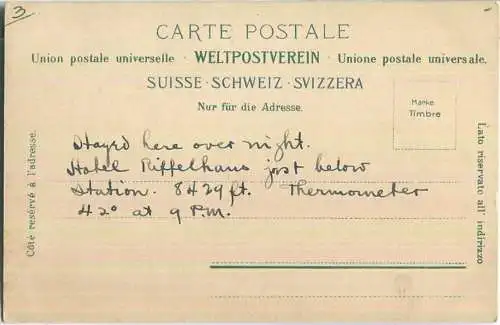 3
CARTE POSTALE
Union postale universelle · WELTPOSTVEREIN · Unione postale universale.
SUISSE · SCHWEIZ · SVIZZERA
Nur für die Adresse.
Marke
Timbre
Côté réservé à l'adresse.
Stayed here over night.
Hotel Riffelhaus just below
Station. 8429 ft. Thermometer
42° at 9 P.M.
Lato riservato all' indirizzo